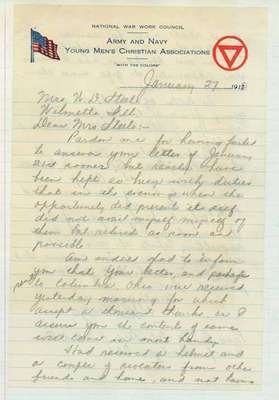 NATIONAL WAR WORK COUNCIL
ARMY AND NAVY
YOUNG MEN'S CHRISTIAN ASSOCIATIONS
"WITH THE COLORS"
January 27 191
Mrs. W. D. Steele
Wilmette Ill.
Dear Mrs Steele:-
Pardon me for having failed
to answer your letter of January
sooner, but really I have
been kept so busy with duties
that in the evening when the
opportunity did present its self
did not avail myself myself of
them but retired as soon as
possible
Am indeed glad to inform
you that your letter, and package
to Columbus, Ohio were received
yesterday morning for which
accept a thousand thanks as I
assure you the contents of same
will come in most handy.
Had received a helmet and
a couple of sweaters from other
friends and home, and not